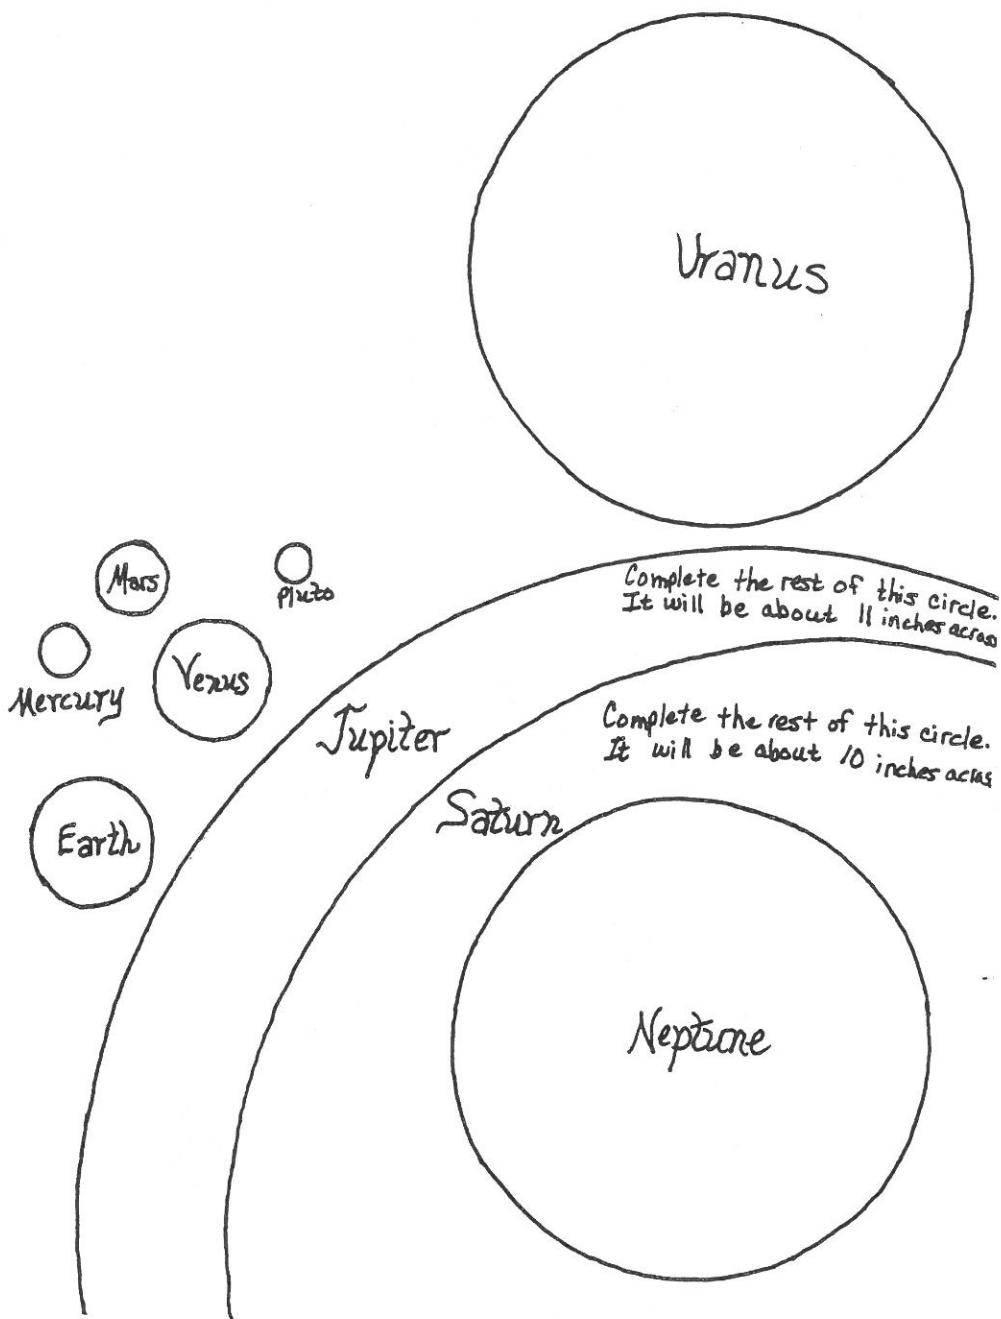 Uranus
Mars
Pluto
Mercury
Venus
Earth
Complete the rest of this circle.
It will be about 11 inches across
Jupiter
Complete the rest of this circle.
It will be about 10 inches across
Saturn
Neptune